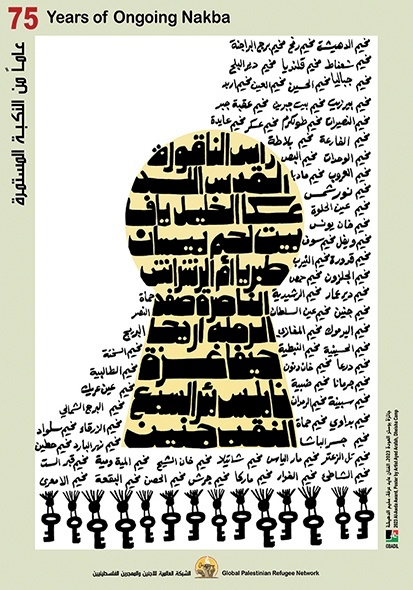 75 Years of Ongoing Nakba
عاماً من النكبة المستمرة
مخيم الدهيشة مخيم رفح مخيم برج البراجنة
مخيم شعفاط مخيم قلنديا مخيم دير البلح
مخيم جباليا مخيم الحسين مخيم العين مخيم اربد
مخيم بيرزيت مخيم بيت جبرين مخيم عقبة جبر
مخيم النصيرات مخيم طولكرم مخيم عسكر مخيم عايدة
مخيم الفارعة مخيم بلاطة
مخيم الوحدات مخيم البص
مخيم العروب مخيم مادبا
مخيم نور شمس
مخيم عين الحلوة
مخيم خان يونس
مخيم ويفل مخيم سوف
مخيم قدورة مخيم النيرب
مخيم الجلزون مخيم حمص
مخيم دير عمار مخيم الرشيدية
مخيم جنين مخيم عين السلطان
مخيم اليرموك مخيم المغازي
مخيم الحسينية مخيم النبطية
مخيم درعا مخيم خان دنون
مخيم جرمانا مخيم ضبية
مخيم سبينة مخيم الرمدان
مخيم بداوي مخيم حماة
مخيم جسر الباشا
حماة
النصر
البريج
مخيم السخنة
مخيم الطالبية
مخيم عين عريك
مخيم البرج الشمالي
مخيم الزرقاء مخيم سلواد
مخيم نهر البارد مخيم حطين
مخيم تل الزعتر مخيم مار الياس مخيم شاتيلا مخيم خان الشيح مخيم المية ومية مخيم قبر الست
مخيم الشاطئ مخيم الفوار مخيم ماركا مخيم جرش مخيم الحصن مخيم البقعة مخيم الامعري
راس الناقورة
القدس اللد
عكا الخليل يافا
بيت لحم بيسان
طبريا ام الرشراش
الناصرة صفد
الرملة اريحا
حيفا غزة
نابلس بئر السبع
النقب جنين
2023 Al-Awda Award, Poster by Artist Ayed Arafah, Dheisha Camp
BADIL
الشبكة العالمية للاجئين والمهجرين الفلسطينيين
Global Palestinian Refugee Network